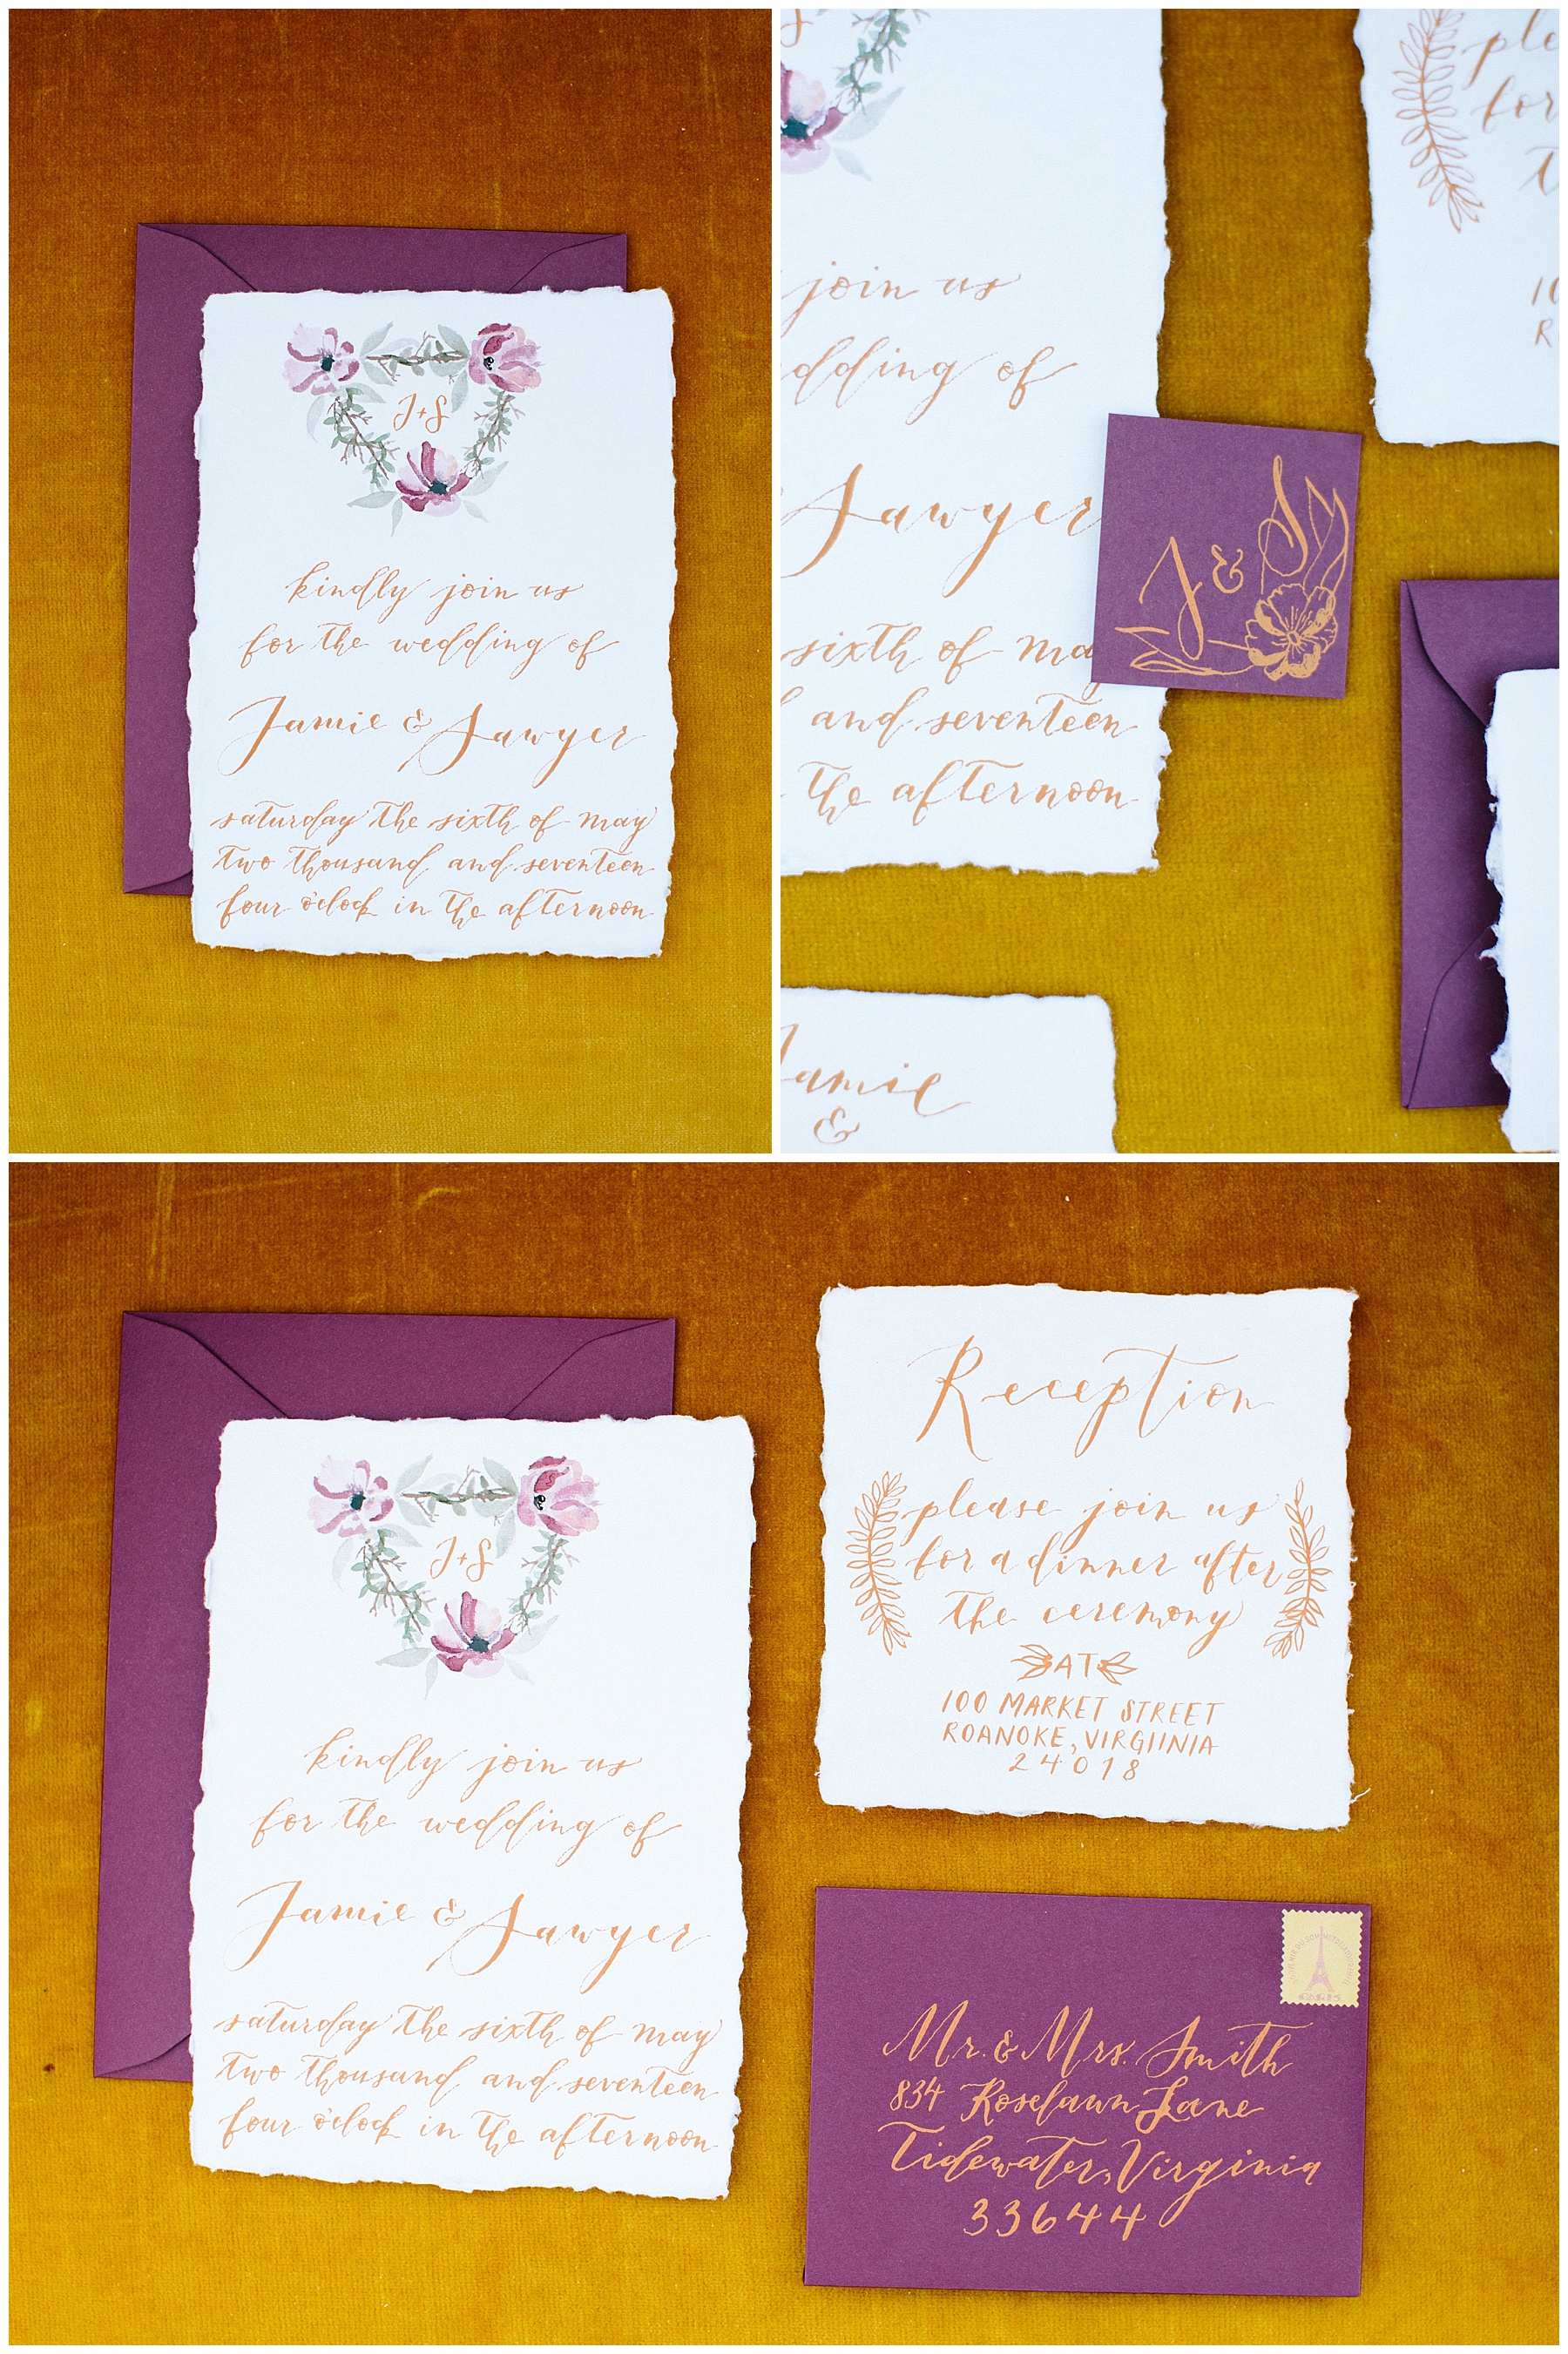 J+S
kindly join us
for the wedding of
Jamie & Sawyer
saturday the sixth of may
two thousand and seventeen
four o'clock in the afternoon
ple
for
t
10
R
join us
dding of
Sawyer
sixth of may
and seventeen
the afternoon
J & S
Jamie
&
J+S
kindly join us
for the wedding of
Jamie & Sawyer
saturday the sixth of may
two thousand and seventeen
four o'clock in the afternoon
Reception
please join us
for a dinner after
the ceremony
AT
100 MARKET STREET
ROANOKE, VIRGIINIA
24018
PARIS
Mr. & Mrs. Smith
834 Roselawn Lane
Tidewater, Virginia
33644